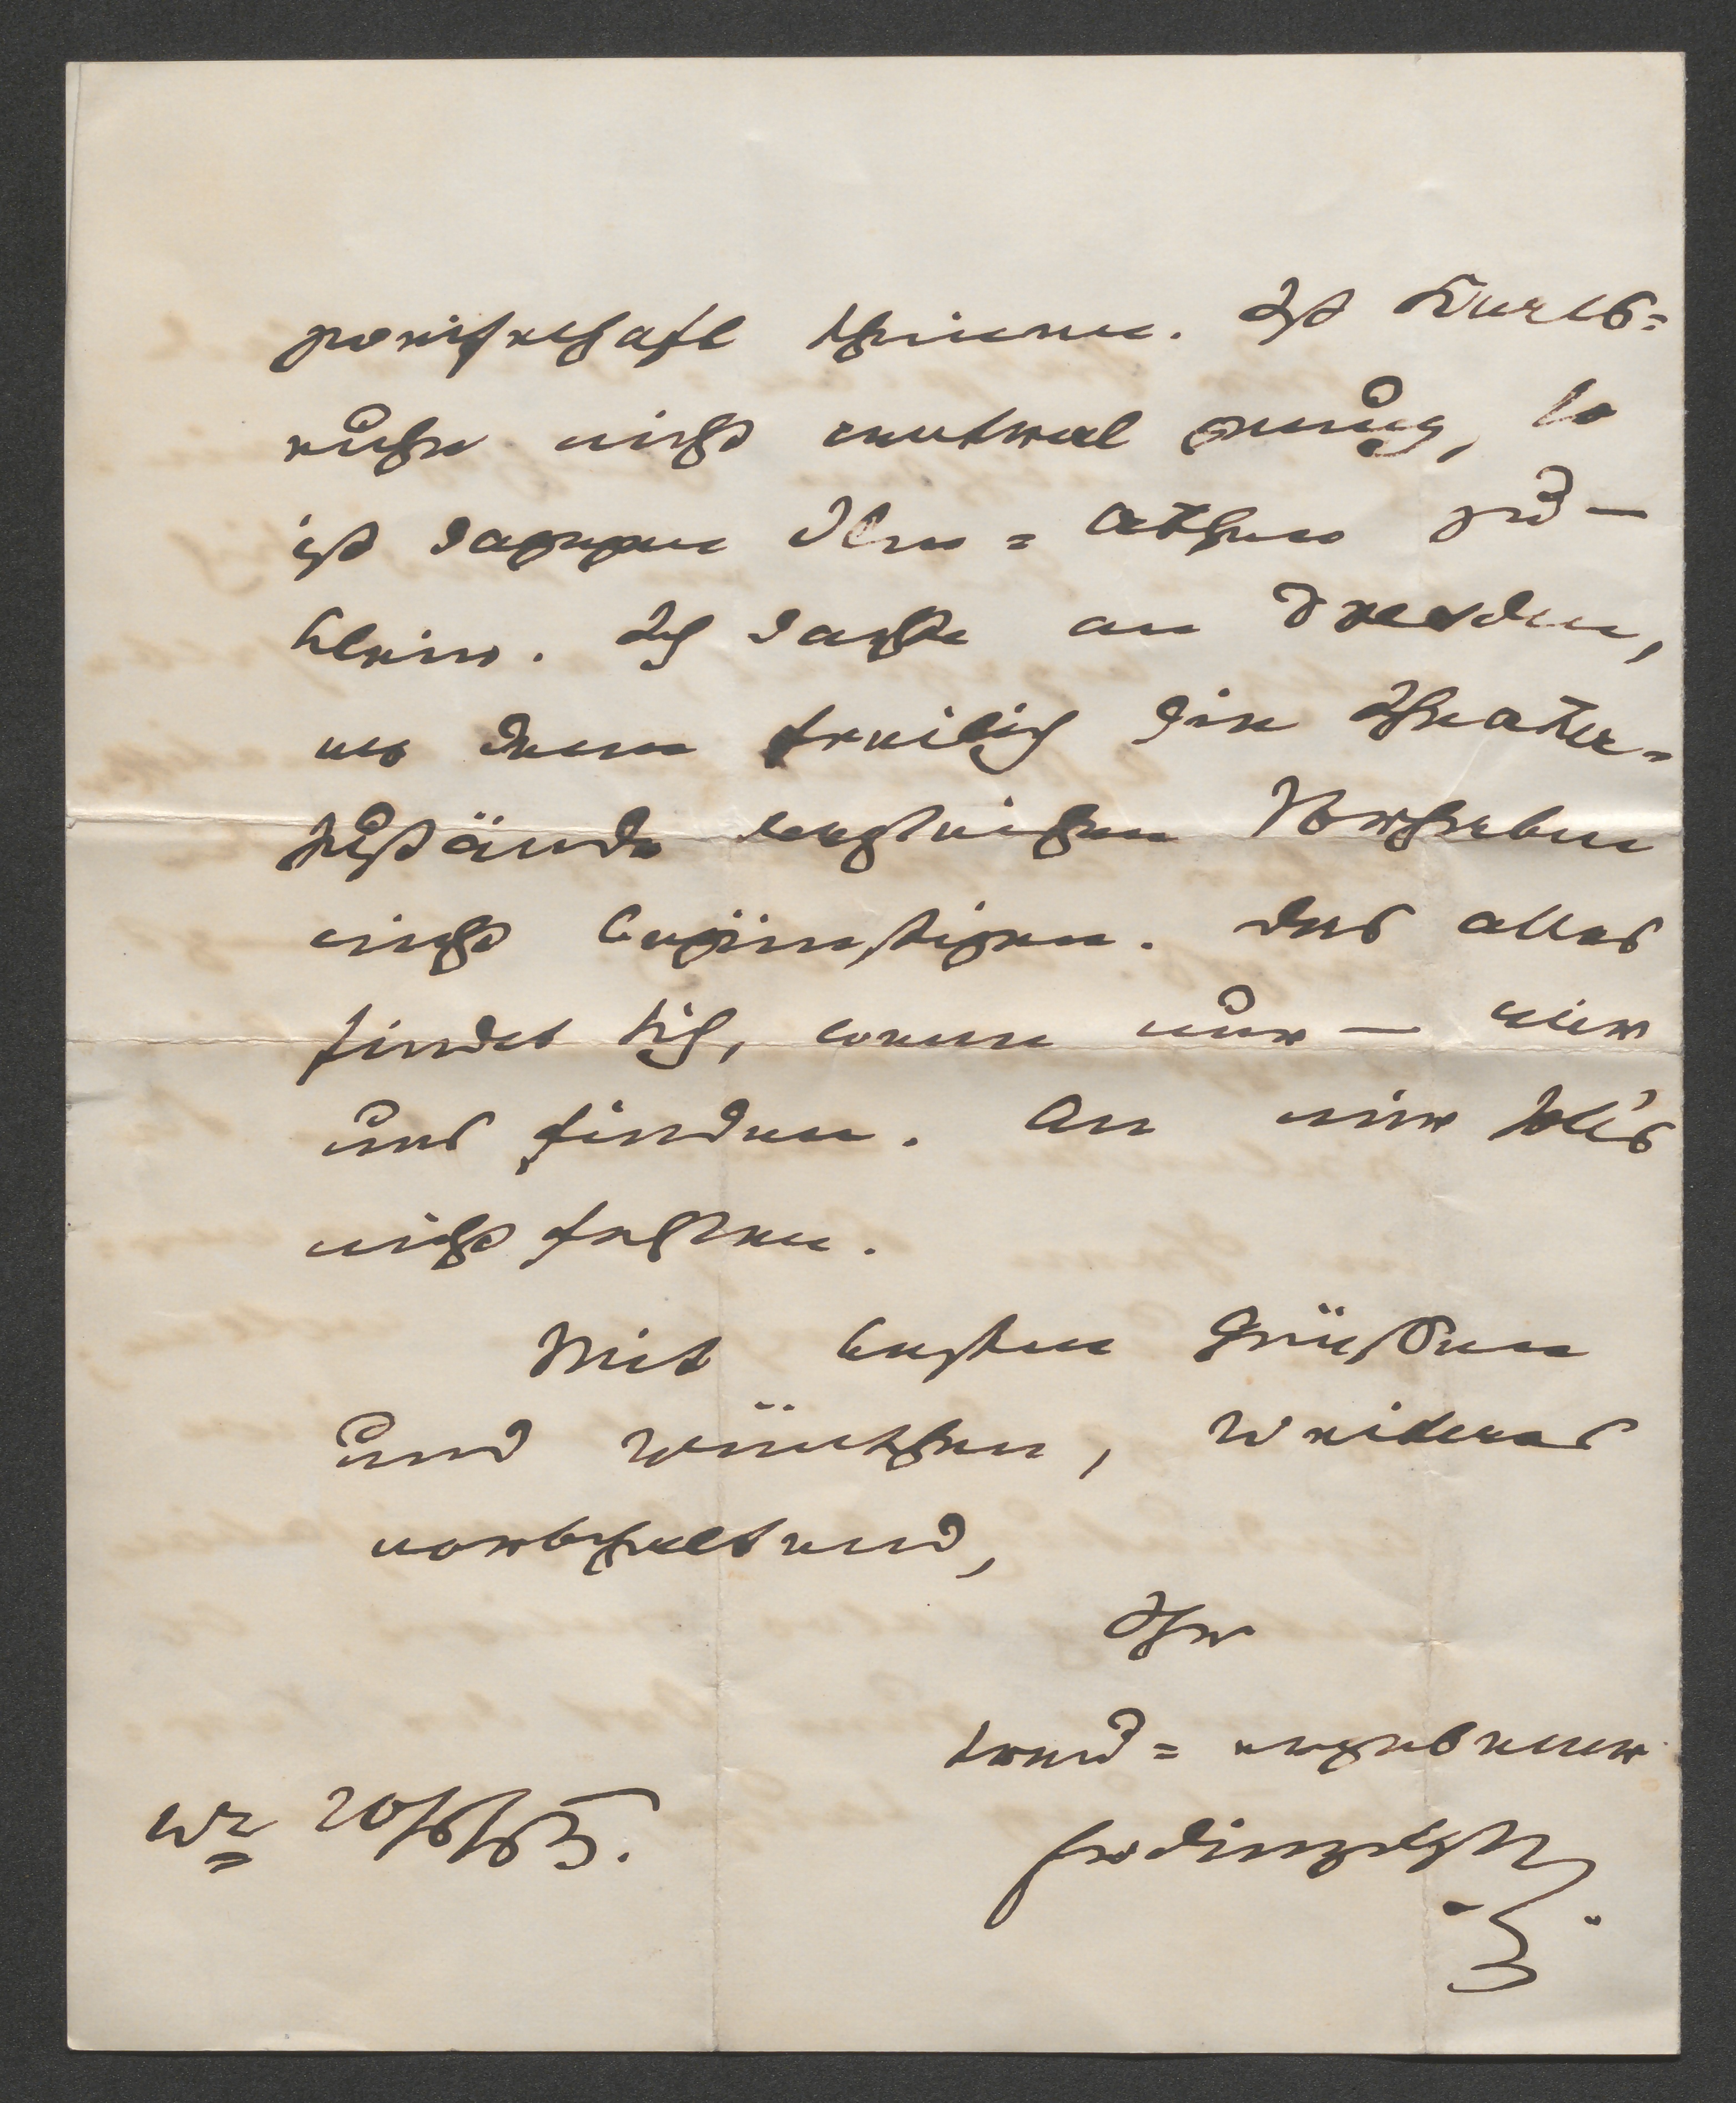 zweifelhaft scheinen. Ist Karls=
ruhe nicht neutral genug, so
ist dagegen Ilm=Athen zu —
klein. Ich dachte an Dresden,
wo denn freilich die Theater=
zustände dergleichen Vorhaben
nicht begünstigen. Das alles
findet sich, wenn nur — wir
uns finden. An mir soll's
nicht fehlen.
Mit besten Grüßen
und Wünschen, Weiteres
vorbehaltend,
Ihr
treu=ergebener
Wr 20/6/63.
FrDingelstedt